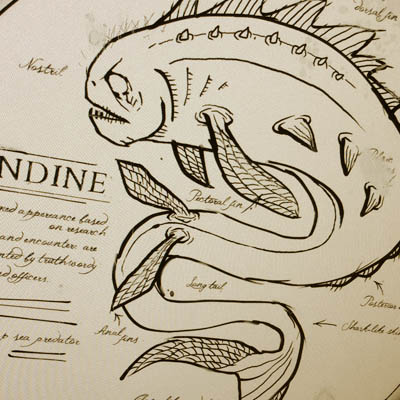 dorsal fin
Nostril
NDINE
Pectoral fin
appereance based
on research
and encounter are
nted by truthwordy
ed officers.
Long tail
Posterior
Anal fins
Shark-like
p sea predator